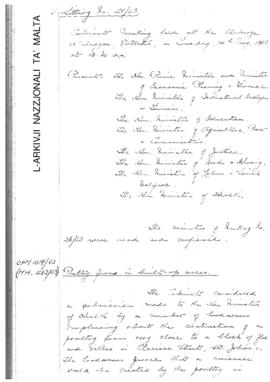 L-ARKIVJI NAZZJONALI TA MALTA
Sitting No. 29/63
Cabinet Meeting held at the Auberge
d'Aragon, Valletta, on Tuesday, 14th May, 1963
at 10.30 am
Present: The Hon. Prime Minister and Minister
of Economic Planning & Finance
The Hon. Minister of Industrial Development
& Tourism
The Hon. Minister of Education
The Hon. Minister of Agriculture, Power
& Communications
The Hon. Minister of Justice
The Hon. Minister of Works & Housing
The Hon. Minister of Labour & Social
Welfare
The Hon. Minister of Health
The minutes of Sitting No.
28/63 were read and confirmed.
OPM 1019/63
Poultry farms in built-up areas.
The Cabinet considered
a submission made to the Hon. Minister
of Health by a number of landowners
complaining about the construction of a
poultry farm very close to a block of flats
and villas in
The landowners feared that a nuisance
would be created by the poultry in